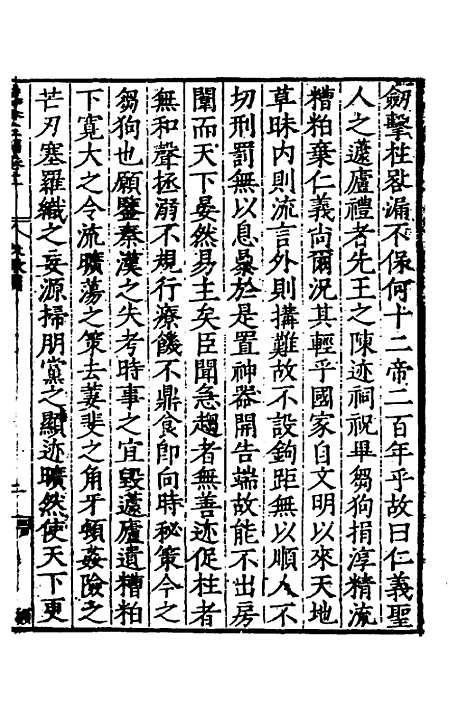 劒擊柱晷漏不保何十二帝二百年乎故曰仁義聖
人之蘧廬禮者先王之陳迹祠祝畢芻狗捐淳精流
糟粕棄仁義尚爾況其輕乎國家自文明以來天地
草昧内則流言外則搆難故不設鉤距無以順人不
切刑罰無以息暴於是置神器開告端故能不出房
闈而天下晏然易主矣臣聞急趨者無善迹促柱者
無和聲拯溺不規行療饑不鼎食卽向時秘策今之
芻狗也願鑒秦漢之失考時事之宜毀蘧廬遺糟粕
下寬大之令流曠蕩之策去萋斐之角牙頓姦險之
芒刃塞羅織之妄源掃朋黨之顯迹曠然使天下更